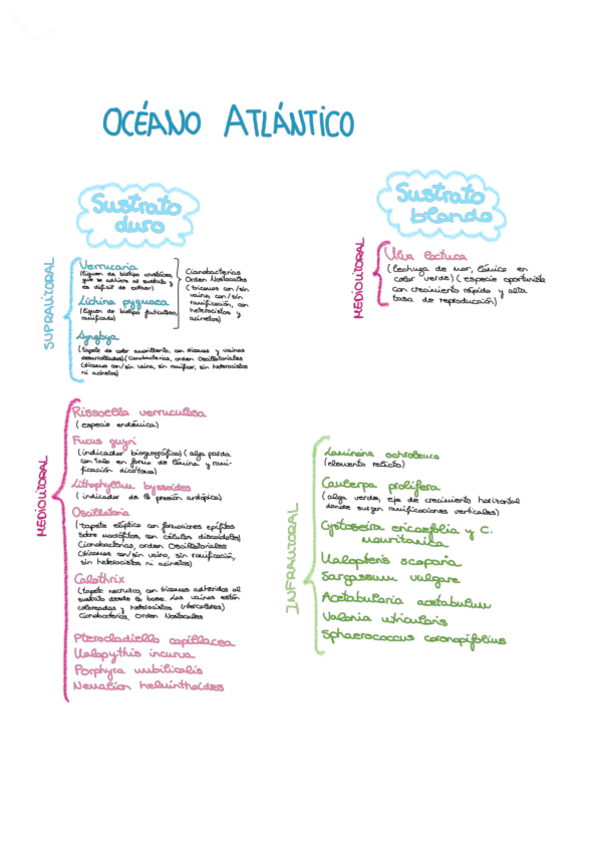 OCÉANO ATLÁNTICO
Sustrato
duro
SUPRALITORAL
Verrucaria
(liquen de biotipo crustáceo,
que se adhiere al sustrato y
es difícil de extraer)
Lichina pygmaea
(liquen de biotipo fruticuloso,
ramificado)
Cianobacterias
Orden Nostocales
(tricomas con/sin
vaina, con/sin
ramificación, con
heterocistos y
acinetos)
Lyngbya
(tapete de color amarillento, con tricomas y vainas
desarrolladas) (Cianobacterias, orden Oscillatoriales
(tricomas con/sin vaina, sin ramificar, sin heterocistos
ni acinetos)
MEDIOLITORAL
Rissoella verruculosa
(especie endémica)
Fucus guyri
(indicador biogeográfico) (alga parda
con talo en forma de lámina y rami-
ficación dicótoma)
Lithophyllum byssoides
(indicador de la presión antrópica)
Oscillatoria
(tapete elíptico con formaciones epífitas
sobre macrófitos, con células discoidales)
Cianobacterias, orden Oscillatoriales
(tricomas con/sin vaina, sin ramificación,
sin heterocistos ni acinetos)
Calothrix
(tapete negruzco, con tricomas adheridos al
sustrato desde la base. Las vainas están
coloreadas y heterocistos
Cianobacterias, Orden Nostocales
Pterocladiella capillacea
Halopythis incurva
Porphyra umbilicalis
Nemalion helminthoides
Sustrato
blando
MEDIOLITORAL
Ulva lactuca
(lechuga de mar, lámina en
color verde) (especie oportunista
con crecimiento rápido y alta
tasa de reproducción)
INFRALITORAL
Laminaria ochroleuca
(elemento relicto)
Caulerpa prolifera
(alga verde, eje de crecimiento horizontal
donde surgen ramificaciones verticales)
Cystoseira ericaefolia y C.
mauritanica
Halopteris scoparia
Sargassum vulgare
Acetabularia acetabulum
Valonia utricularis
Sphaerococcus coronopifolius